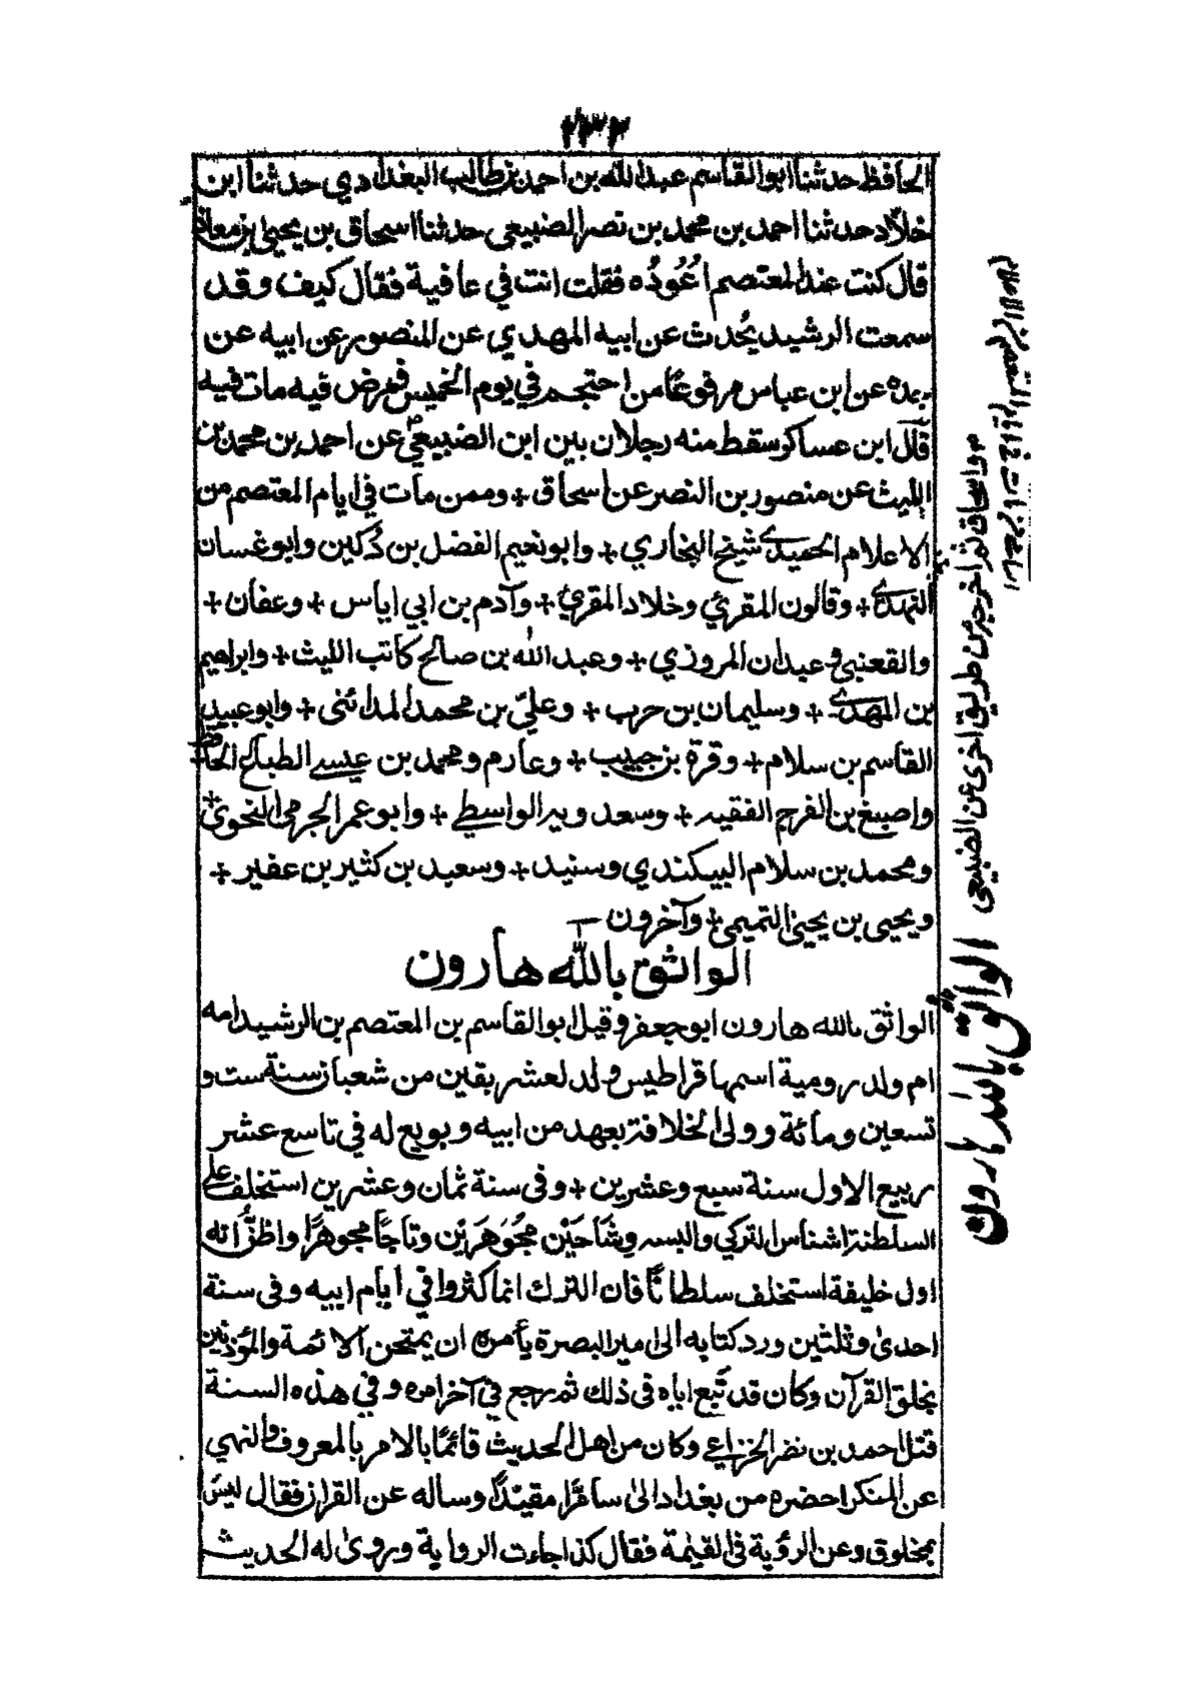 ٢٣٢
الحافظ حدثنا ابو القاسم عبد الله بن احمد بن طالب البغدادي حدثنا ابن
خلّاد حدثنا احمد بن محمد بن نصر الضبيعي حدثنا اسحاق بن يحيىٰ بن معاذ
قال كنت عند المعتصم اَعُوْدُه فقلت انت في عافية فقال كيف وقد
سمعت الرشيد يُحدث عن ابيه المهدي عن المنصور عن ابيه عن
جده عن ابن عباس مرفوعًا من احتجم في يوم الخميس فمرض فيه مات فيه
قال ابن عساكر سقط منه رجلان بين ابن الضبيعي عن احمد بن محمد بن
الليث عن منصور بن النصر عن اسحاق + وممن مات في ايام المعتصم من
الاعلام الحميدي شيخ البخاري + وابو نعيم الفضل بن دُكين وابو غسان
النهدي + وقالون المقرئ وخلاد المقرئ + وآدم بن ابي اياس + وعفان +
والقعنبي وعبدان المروزي + وعبد الله بن صالح كاتب الليث + وابراهيم
بن المهدي + وسليمان بن حرب + وعليّ بن محمد المدائنى + وابو عبيد
القاسم بن سلام + وقرة بن حبيب + وعارم ومحمد بن عيسے الطباع الحافظ +
واصبغ بن الفرج الفقيه + وسعدويه الواسطي + وابو عمر الجرمى النحوي +
ومحمد بن سلام البيكندي وسنيد + وسعيد بن كثير بن عفير +
ويحيى بن يحيىٰ التميمي + وآخرون
الواثق بالله هارون
الواثق بالله هارون ابو جعفر وقيل ابو القاسم بن المعتصم بن الرشيد امه
ام ولد رومية اسمها قراطيس ولد لعشر بقين من شعبان سنة ست و
تسعين ومائة وولى الخلافة بعهد من ابيه وبويع له في تاسع عشر
ربيع الاول سنة سبع وعشرين + وفى سنة ثمان وعشرين استخلف علے
السلطنة اشناس التركي والبسه وِشَاحَيْن مُجَوْهَرَيْن وتاجًا مجوهرًا واظنُّ انه
اول خليفة استخلف سلطانًا فان الترك انما كثروا في ايام ابيه وفى سنة
احدىٰ وثلثين ورد كتابه الىٰ امير البصرة يأمره ان يمتحن الائمة والمؤذنين
بخلق القرآن وكان قد تَبع اباه فى ذلك ثم رجع في آخر امره وفي هذه السنة
قتل احمد بن نصر الخزاعي وكان من اهل الحديث قائمًا بالامر بالمعروف والنهي
عن المنكر احضره من بغداد الىٰ سامرّا مقيّدًا وساله عن القران فقال ليس
بمخلوق وعن الرؤية فى القيٰمة فقال كذا جاءت الرواية وروىٰ له الحديث
واسحاق ثم اخرجه من طريق اخرى عن الضبيعي
الواثق بالله هارون